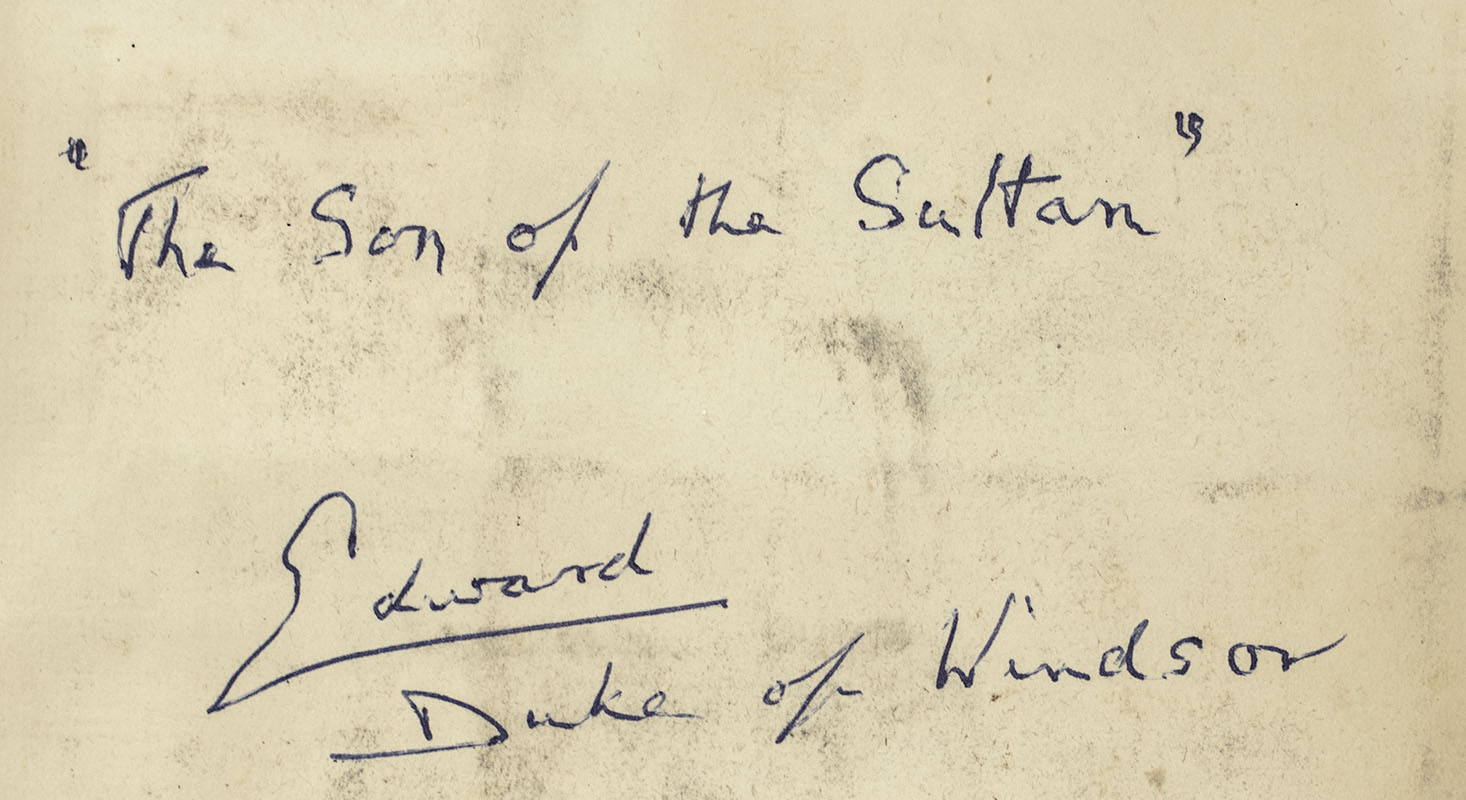 "The Son of the Sultan"
Edward
Duke of Windsor